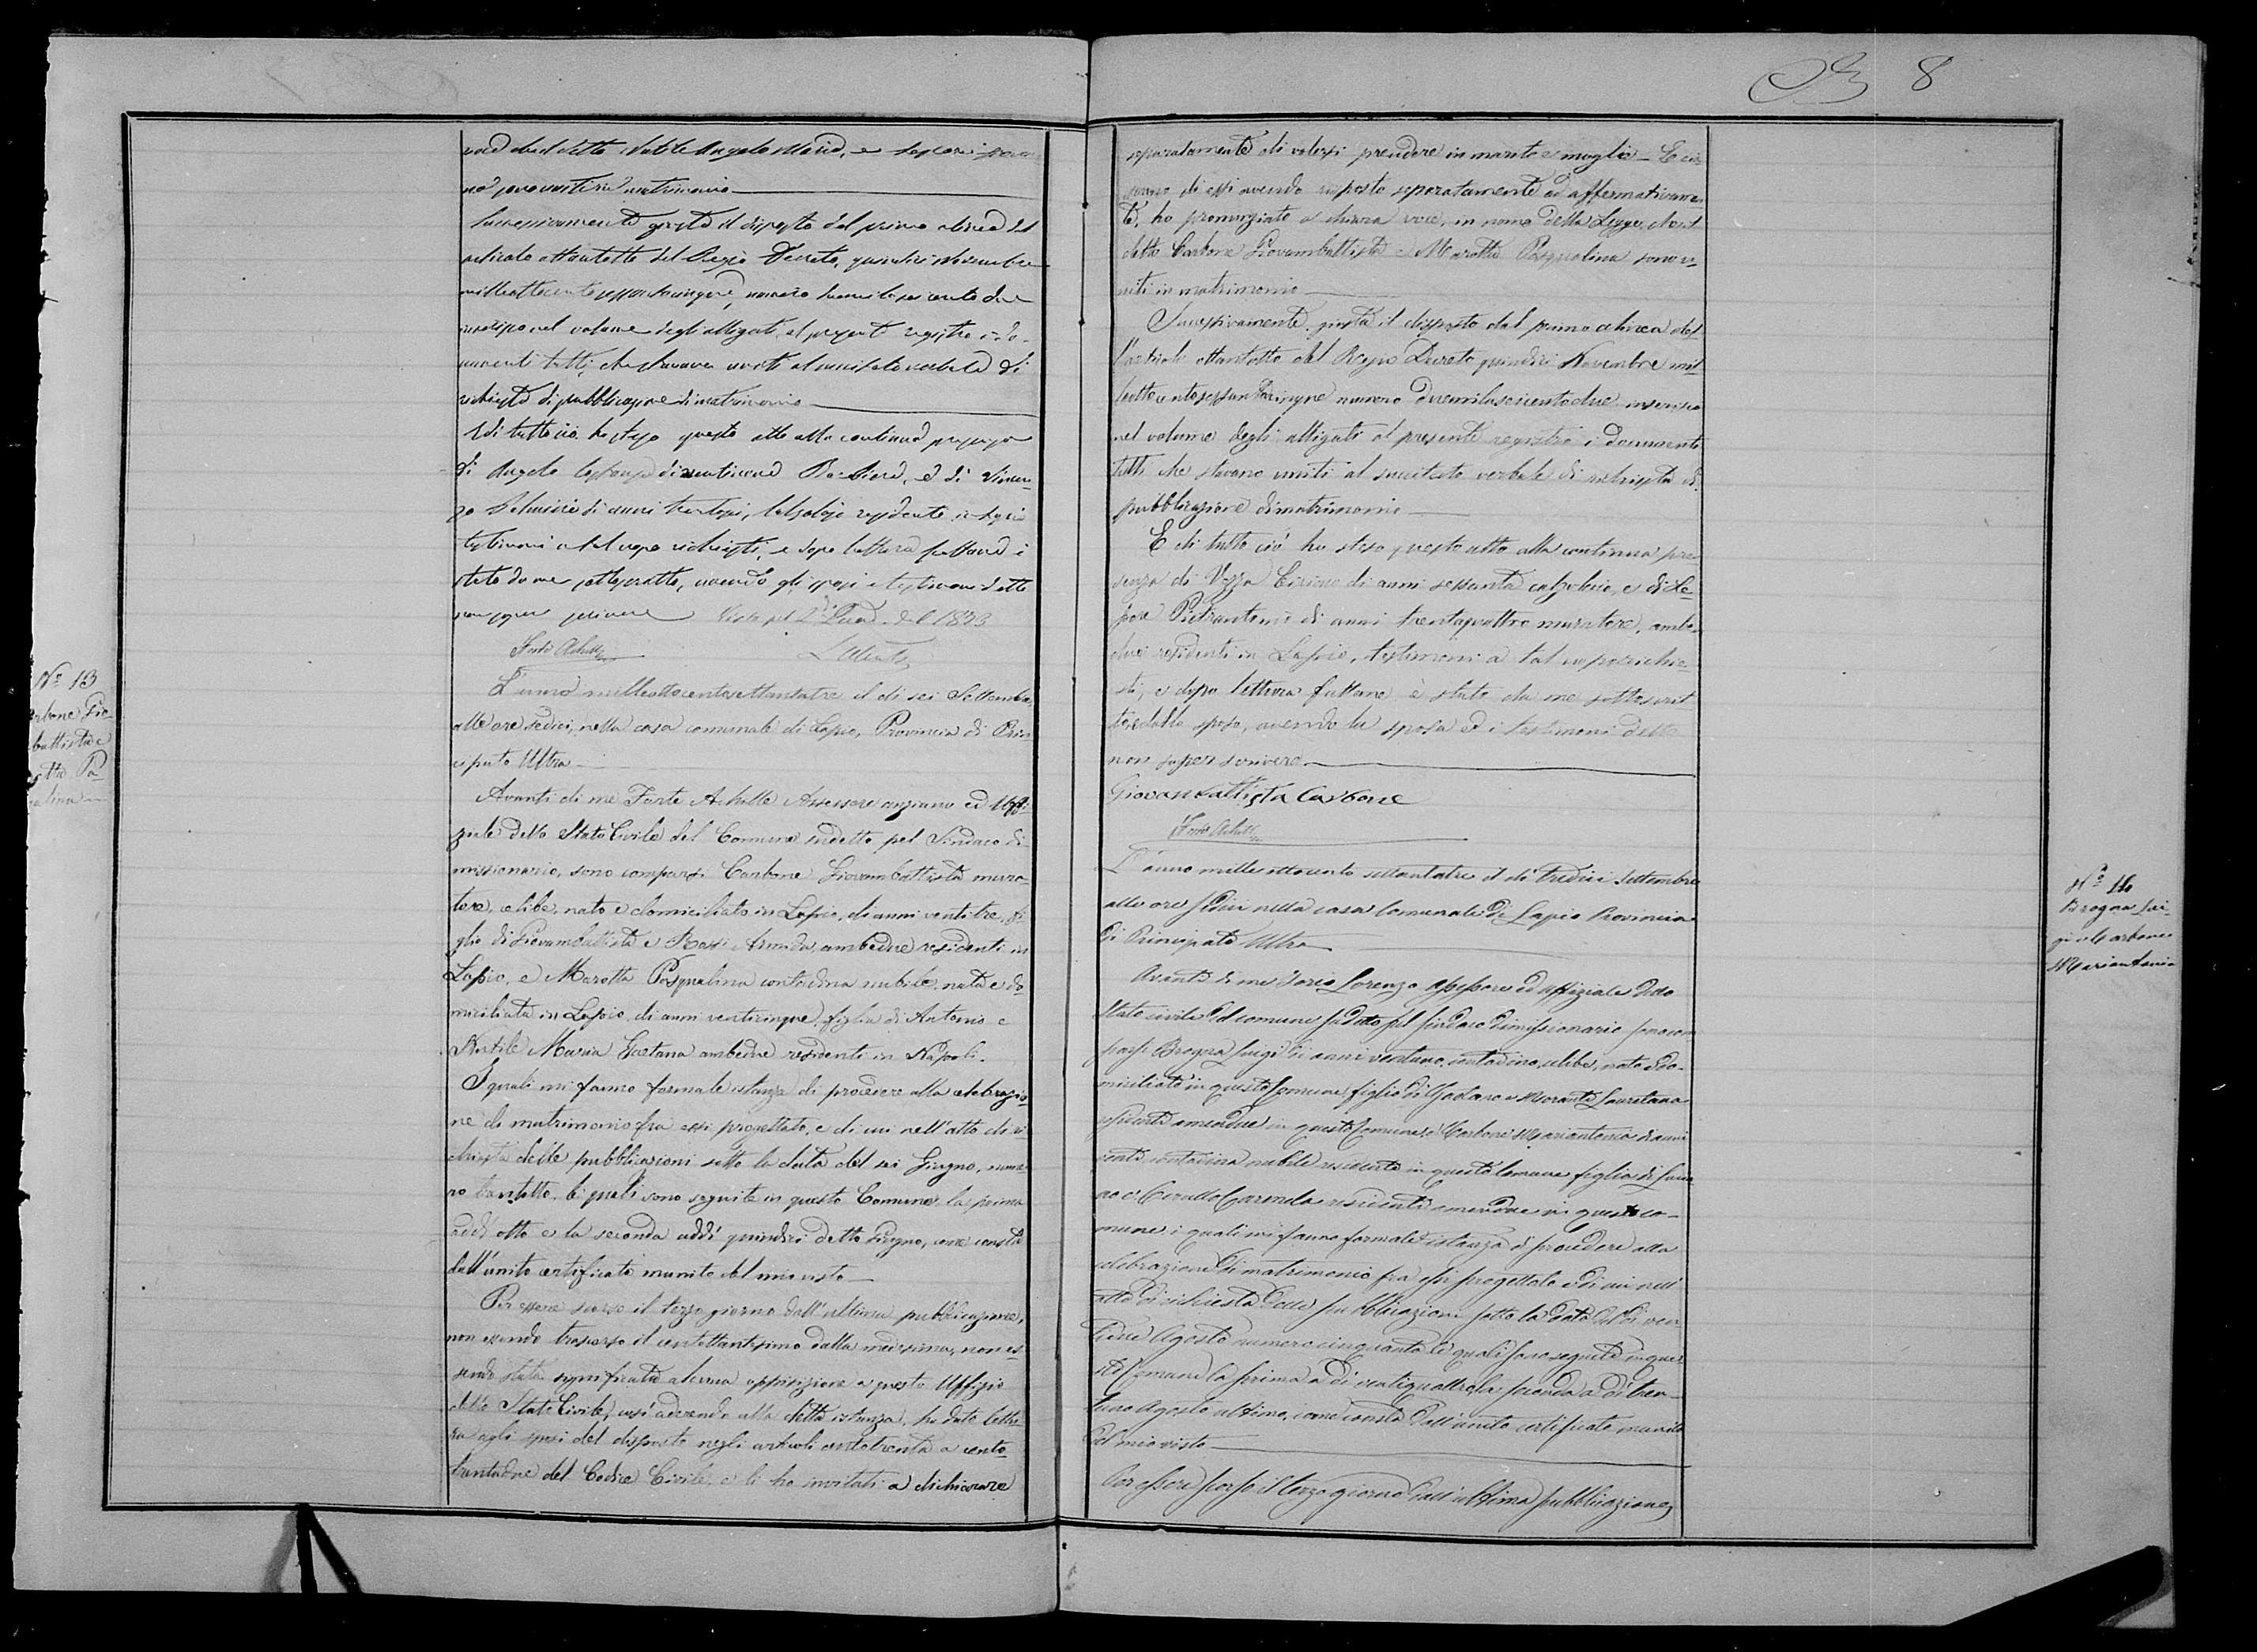 8
detto Angelo Maria, e
uniti in matrimonio
Successivamente giusta il disposto del primo alinea del
articolo ottantotto del Regio Decreto, quindici Novembre
milleottocentosessantacinque, numero duemilaseicentodue
inserisco nel volume degli alligati al presente registro i do-
cumenti tutti, che stavano uniti al succitato verbale di
richiesta di pubblicazione di matrimonio
E di tutto ciò ho steso questo atto alla continua presenza
di Angelo di anni e di Vincen-
zo di anni residenti in Lapio
testimoni a tal uopo richiesti, e dopo lettura fattane è
stato da me sottoscritto, avendo gli sposi e testimoni detto
non saper scrivere Visto pel 2° Quad. del 1873
Forte Achille
N.° 13
rbone Gio-
battista e
otta Pa-
alina
L'anno milleottocentosettantatre il dì sei Settembre,
alle ore sedici, nella casa comunale di Lapio, Provincia di Prin-
cipato Ultra
Avanti di me Forte Achille Assessore anziano ed Uffi-
ziale dello Stato Civile del Comune sudetto pel Sindaco di-
missionario, sono comparsi Carbone Giovambattista mura-
tore, celibe, nato e domiciliato in Lapio, di anni ventitre, fi-
glio di Giovambattista e Rossi ambedue residenti in
Lapio, e Marotta Pasqualina contadina nubile, nata e do-
miciliata in Lapio, di anni venticinque, figlia di Antonio e
Maria Gaetana ambedue residenti in Napoli.
I quali mi fanno formale istanza di procedere alla celebrazio-
ne di matrimonio fra essi progettato, e di cui nell'atto di ri-
chiesta delle pubblicazioni sotto la data del sei Giugno, nume-
ro le quali sono seguite in questo Comune, la prima
addì otto e la seconda addì quindici detto Giugno, come consta
dall'unito certificato munito del mio visto
Per essere scorso il terzo giorno dall'ultima pubblicazione,
non essendo trascorso il centottantesimo dalla medesima, non es-
sendo stata significata alcuna opposizione a questo Uffizio
dello Stato Civile, così aderendo alla detta istanza, ho dato lettu-
ra agli sposi del disposto negli articoli centotrenta a cento
trentadue del Codice Civile, e li ho invitati a dichiarare
separatamente di volersi prendere in marito e moglie - E cia-
scuno di essi avendo risposto separatamente ed affermativamen-
te, ho pronunziato a chiara voce, in nome della Legge, che il
detto Carbone Giovambattista e Marotta Pasqualina sono u-
niti in matrimonio
Successivamente, giusta il disposto dal primo alinea del-
l'articolo ottantotto del Regio Decreto quindici Novembre mil-
leottocentosessantacinque numero duemilaseicentodue inserisco
nel volume degli alligati al presente registro i documenti
tutti che stavano uniti al succitato verbale di richiesta di
pubblicazione di matrimonio
E di tutto ciò ho steso questo atto alla continua pre-
senza di Vozza Ciriaco di anni sessanta calzolaio, e di Le-
pore Pietrantonio di anni trentaquattro muratore, ambe-
due residenti in Lapio, testimoni a tal uopo richie-
sti, e dopo lettura fattane è stato da me sottoscrit-
to e dallo sposo, avendo la sposa ed i testimoni detto
non saper scrivere
Giovanbattista Carbone
Forte Achille
N.° 14
Brogna Lui-
gi e Carbone
Mariantonia
L'anno milleottocento settantatre il dì tredici Settembre
alle ore sedici nella casa Comunale di Lapio Provincia
di Principato Ultra
Avanti di me Iorio Lorenzo Assessore ed Uffiziale dello
Stato civile del comune sudetto pel sindaco dimissionario sono com-
parsi Brogna Luigi di anni ventuno, contadino celibe, nato e do-
miciliato in questo Comune, figlio di e Morante
residenti amendue in questo Comune, e Carbone Mariantonia di anni
venti contadina nubile residente in questo Comune figlia di
e residenti amendue in questo co-
mune i quali mi fanno formale istanza di procedere alla
celebrazione di matrimonio fra essi progettato e di cui nell'
atto di richiesta delle pubblicazioni sotto la data del dì ven-
tidue Agosto numero cinquanta le quali sono seguite in que-
sto Comune la prima a dì ventiquattro, la seconda a dì tren-
tuno Agosto ultimo, come consta dall'unito certificato munito
del mio visto
Per essere scorso il terzo giorno dall'ultima pubblicazione,